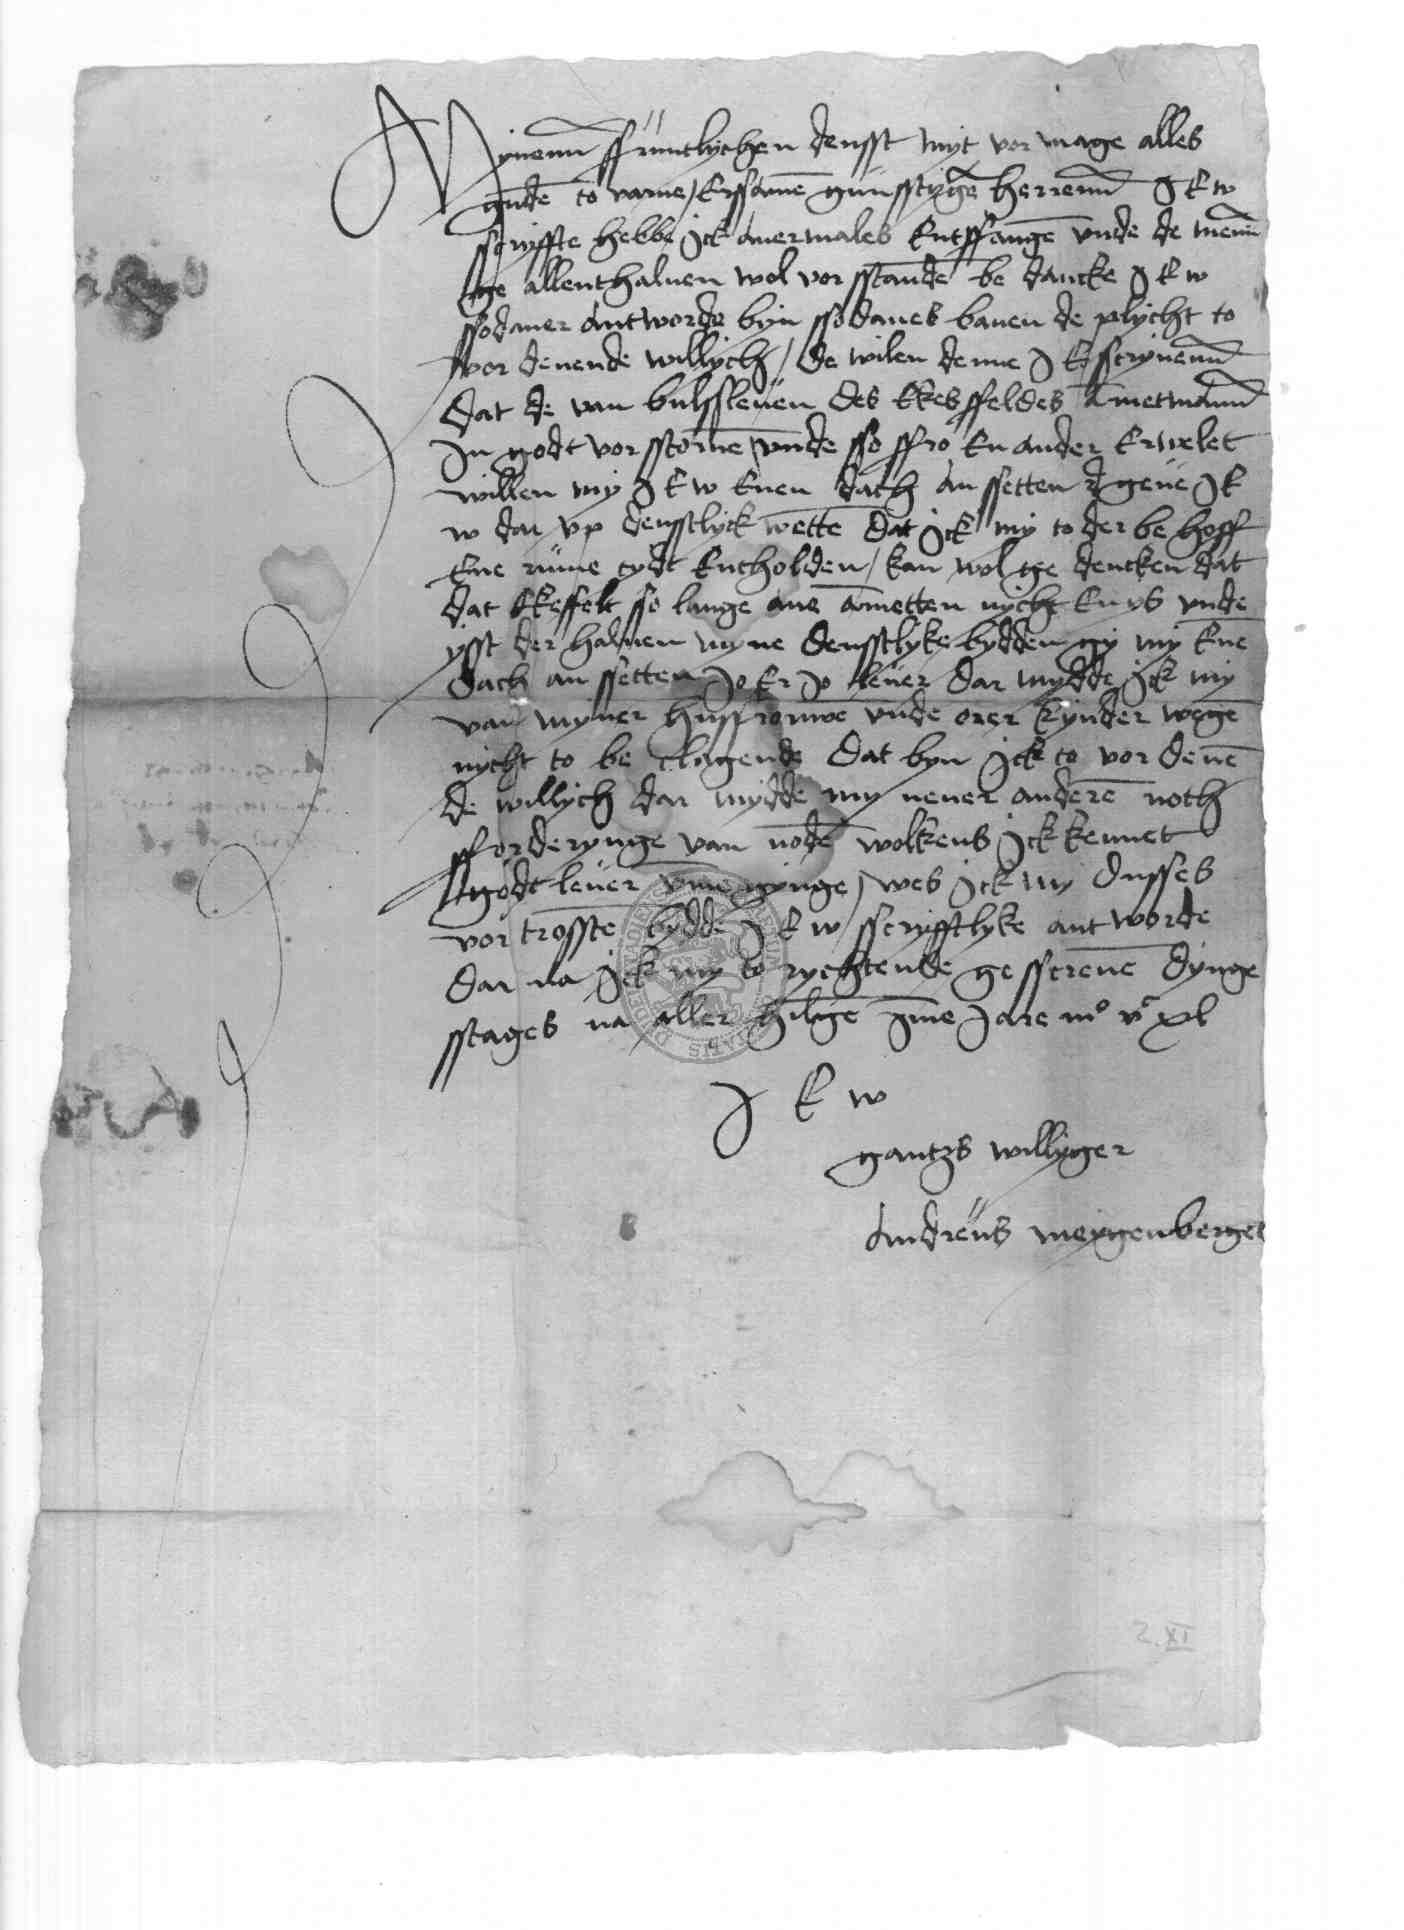 Mynenn ffruntlychen densst myt vor mage alles
gude to vorne / Erssame gunsstyge herrenn J E w
scryffte hebbe jck auermales Entpfange vnde de menn
ge allenthaluen wol vor sstande be dancke J E w
ssodaner antworde byn ssodanes bauen de plycht to
vor denende willych / de wilen denne J E scryuenn
dat de van bulssleuen des Ekesffeldes ametmann
Jn godt vor sstorue vnde sso ffro En ander Erwelet
willen my J E w Enen dach an setten geue J E
w dar vp densstlyck wette dat jck my to der be hoff
Ene rume tydt Entholden / kan wol ge dencken dat
dat Ekeffelt so lange ane ametten nycht En ys vnde
ysst der haluen myne densstlyke bydden gy my Ene
dach an ssetten jo Er jo leuer dar mydde jck my
van myner husffrouwe vnde orer kynder wege
nycht to be clagende dat byn jck to vor dene
de willych dar mydde my nener andere noth
fforderynge van node wolkens jck kennet
godt leuer vme gynge / wes jck my dusses
vor trosste bydde J E w sscryfftlyke ant worde
dar na jck my to rychtende gesscreue dynge
sstages na aller hilge jme Jare m° v^c xl
J E w
gantzs willyger
Andreus meygenberges
2. XI